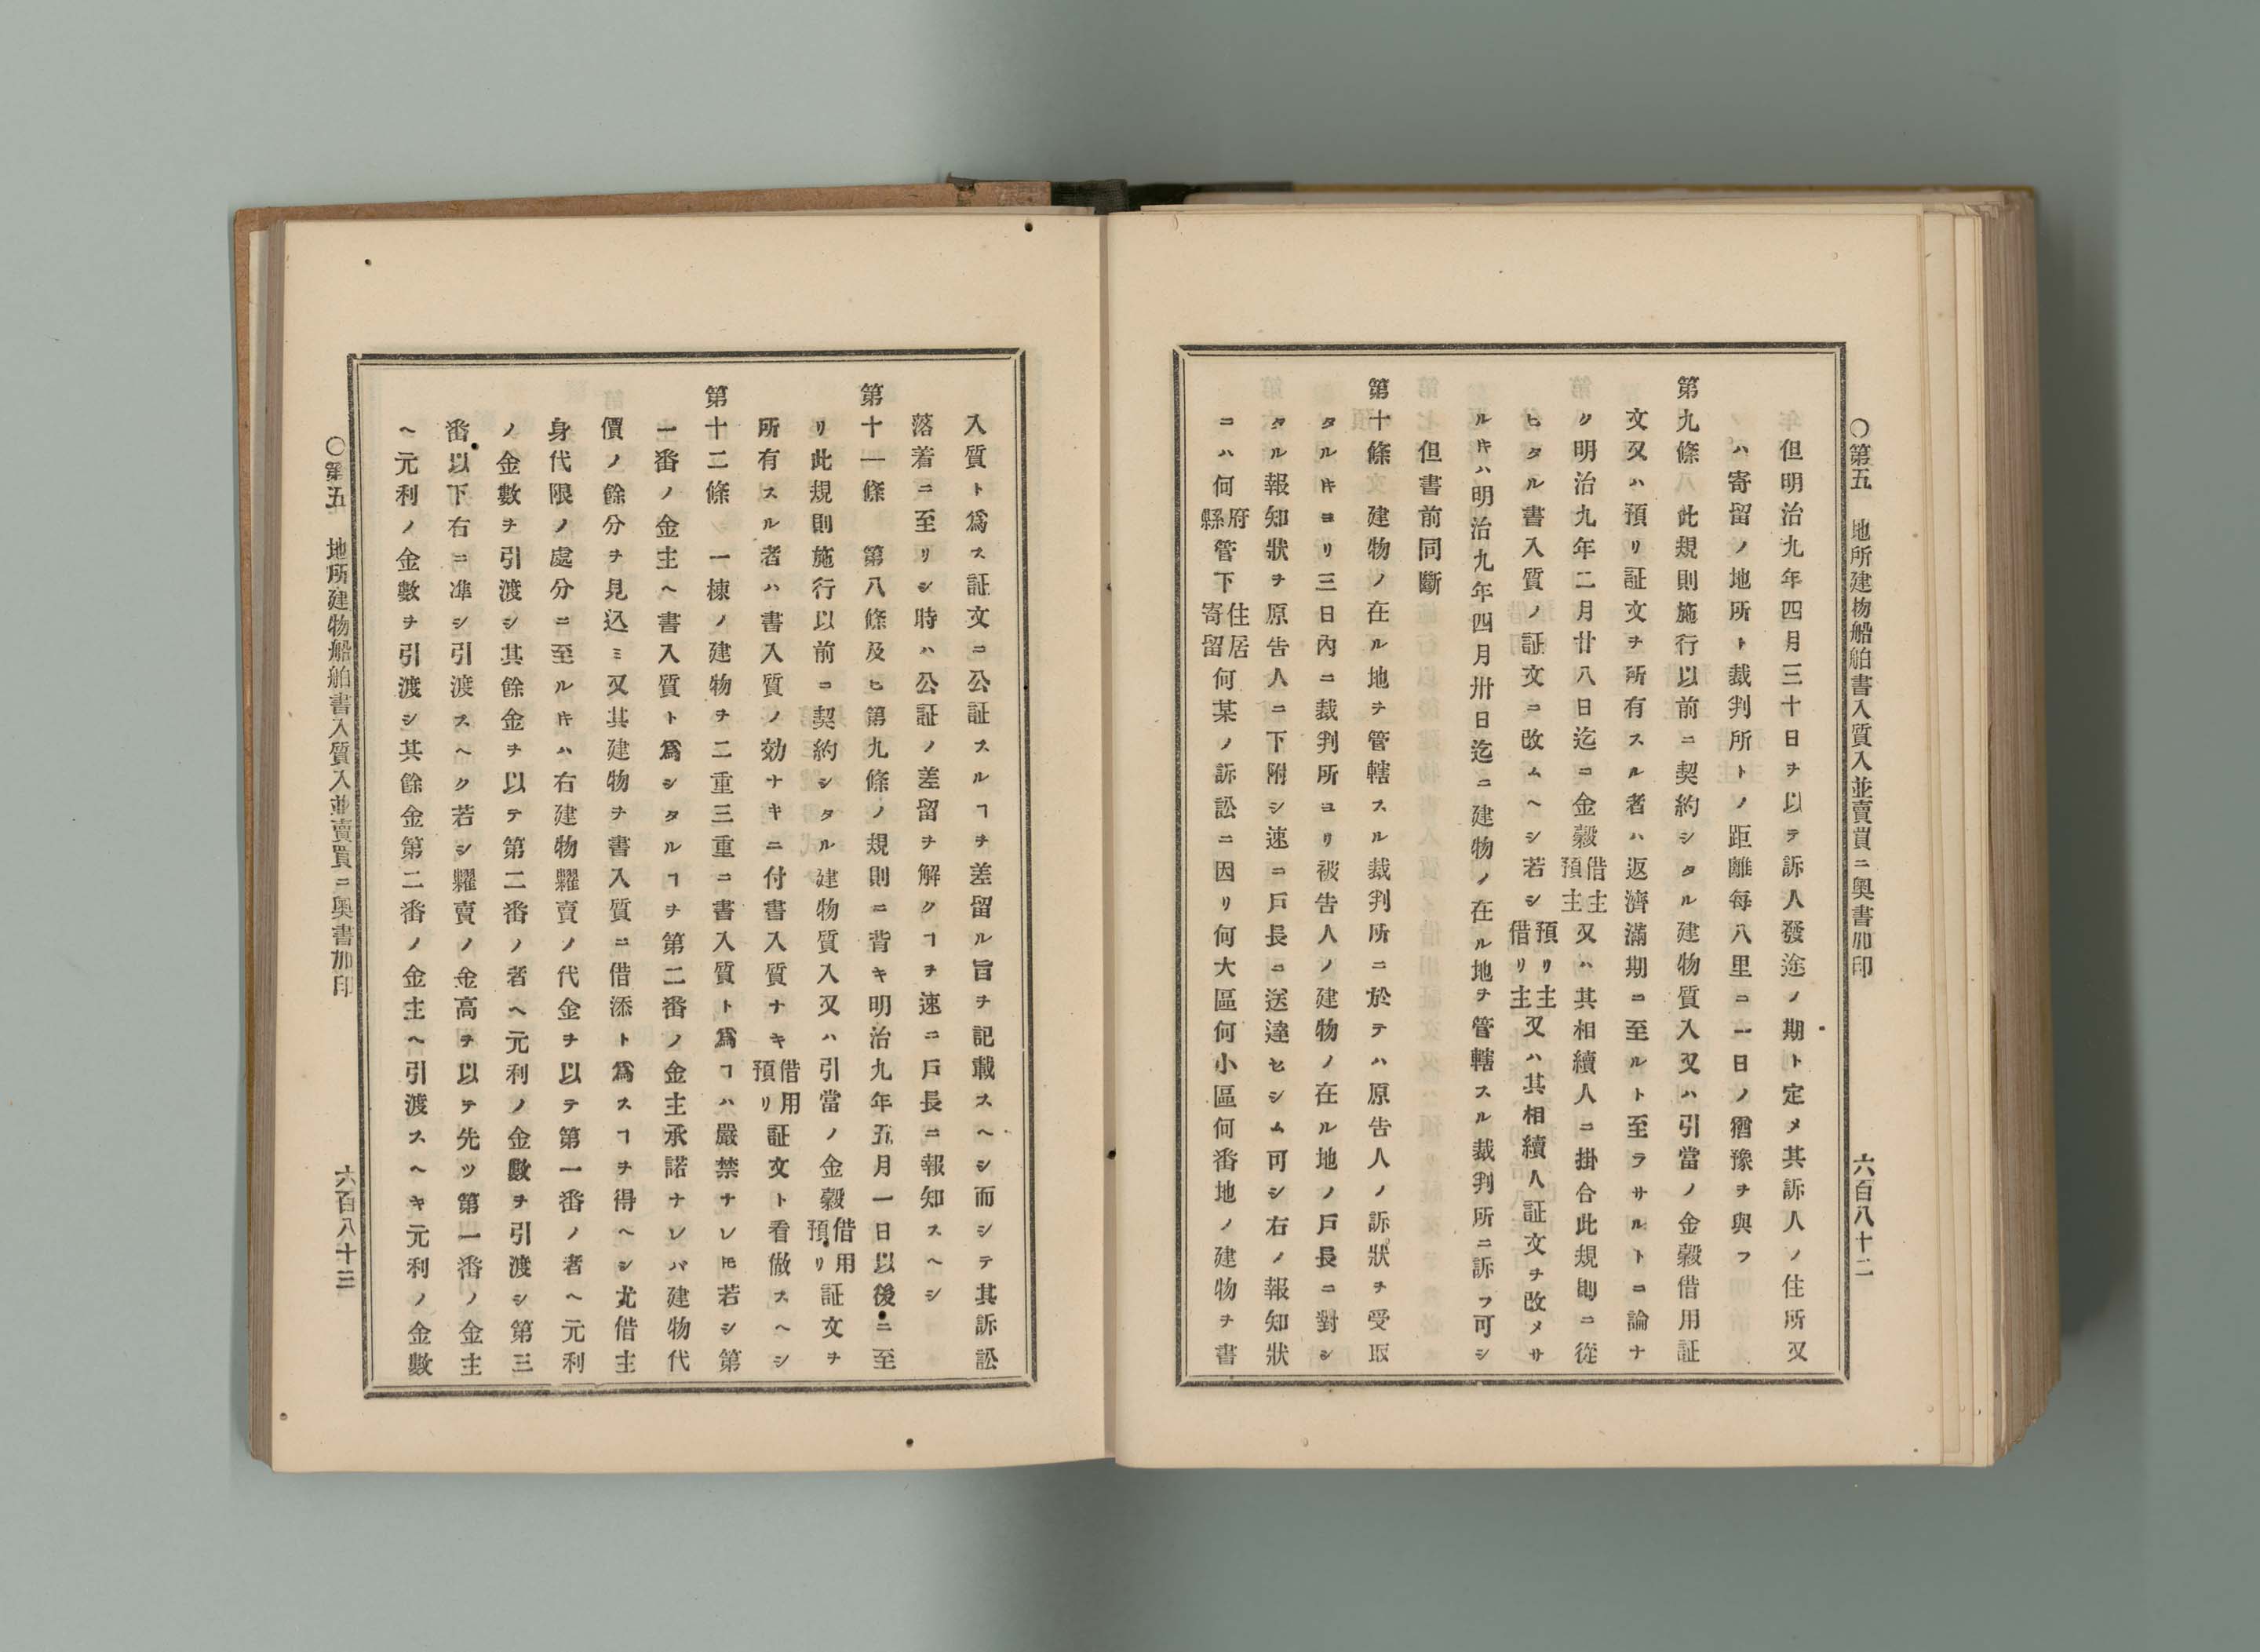 ○第五　地所建物船舶書入質入並賣買ニ奧書加印　六百八十二
但明治九年四月三十日ヲ以テ訴人發途ノ期ト定メ其訴人ノ住所又
ハ寄留ノ地所ト裁判所トノ距離每八里ニ一日ノ猶豫ヲ與フ
第九條　此規則施行以前ニ契約シタル建物質入又ハ引當ノ金穀借用証
文又ハ預リ証文ヲ所有スル者ハ返濟滿期ニ至ルト至ラサルトニ論ナ
ク明治九年二月廿八日迄ニ金穀借主預主又ハ其相續人ニ掛合此規則ニ從
ヒタル書入質ノ証文ニ改ムヘシ若シ預リ主借リ主又ハ其相續人証文ヲ改メサ
ルキハ明治九年四月卅日迄ニ建物ノ在ル地ヲ管轄スル裁判所ニ訴フ可シ
但書前同斷
第十條　建物ノ在ル地ヲ管轄スル裁判所ニ於テハ原告人ノ訴狀ヲ受取
タルキヨリ三日內ニ裁判所ヨリ被告人ノ建物ノ在ル地ノ戶長ニ對シ
タル報知狀ヲ原告人ニ下附シ速ニ戶長ニ送達セシム可シ右ノ報知狀
ニハ何府縣管下住居寄留何某ノ訴訟ニ因リ何大區何小區何番地ノ建物ヲ書
入質ト爲ス証文ニ公証スルヿヲ差留ル旨ヲ記載スヘシ而シテ其訴訟
落着ニ至リシ時ハ公証ノ差留ヲ解クヿヲ速ニ戶長ニ報知スヘシ
第十一條　第八條及ヒ第九條ノ規則ニ背キ明治九年五月一日以後ニ至
リ此規則施行以前ニ契約シタル建物質入又ハ引當ノ金穀借用預リ証文ヲ
所有スル者ハ書入質ノ効ナキニ付書入質ナキ借用預リ証文ト看做スヘシ
第十二條　一棟ノ建物ヲ二重三重ニ書入質ト爲ヿハ嚴禁ナレ𪜈若シ第
一番ノ金主ヘ書入質ト爲シタルヿヲ第二番ノ金主承諾ナレバ建物代
價ノ餘分ヲ見込ミ又其建物ヲ書入質ニ借添ト爲スヿヲ得ヘシ尤借主
身代限ノ處分ニ至ルキハ右建物糶賣ノ代金ヲ以テ第一番ノ者ヘ元利
ノ金數ヲ引渡シ其餘金ヲ以テ第二番ノ者ヘ元利ノ金數ヲ引渡シ第三
番以下右ニ準シ引渡スヘク若シ糶賣ノ金高ヲ以テ先ツ第一番ノ金主
ヘ元利ノ金數ヲ引渡シ其餘金第二番ノ金主ヘ引渡スヘキ元利ノ金數
○第五　地所建物船舶書入質入並賣買ニ奧書加印　六百八十三